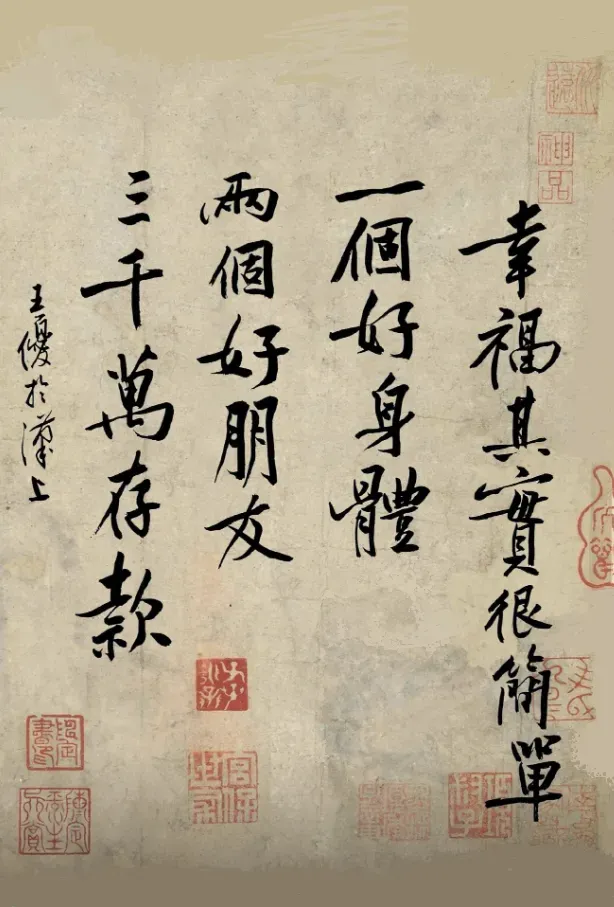 幸福其實很簡單
一個好身體
兩個好朋友
三千萬存款
王優於漢上
神品